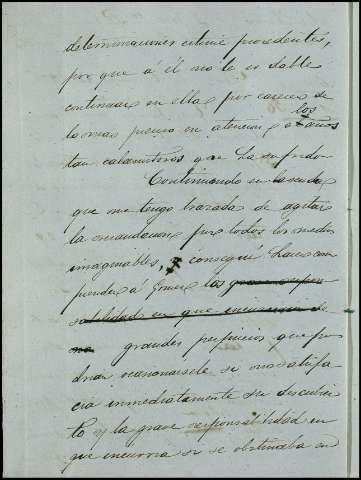 determinaciones estime procedentes,
por que á él no le es dable
continuar en ella por carecer de
lo mas preciso en atencion a los años
tan calamitosos que ha sufrido
Continuando en la senda
que me tengo trazada de agitar
la recaudacion por todos los medios
imaginables, y conseguí hacer com
prender á Gomez los
grandes perjuicios que po
drian ocasionarsele si no satisfa
cia inmediatamente su descubier
to y la grave responsabilidad en
que incurria si se obstinaba en